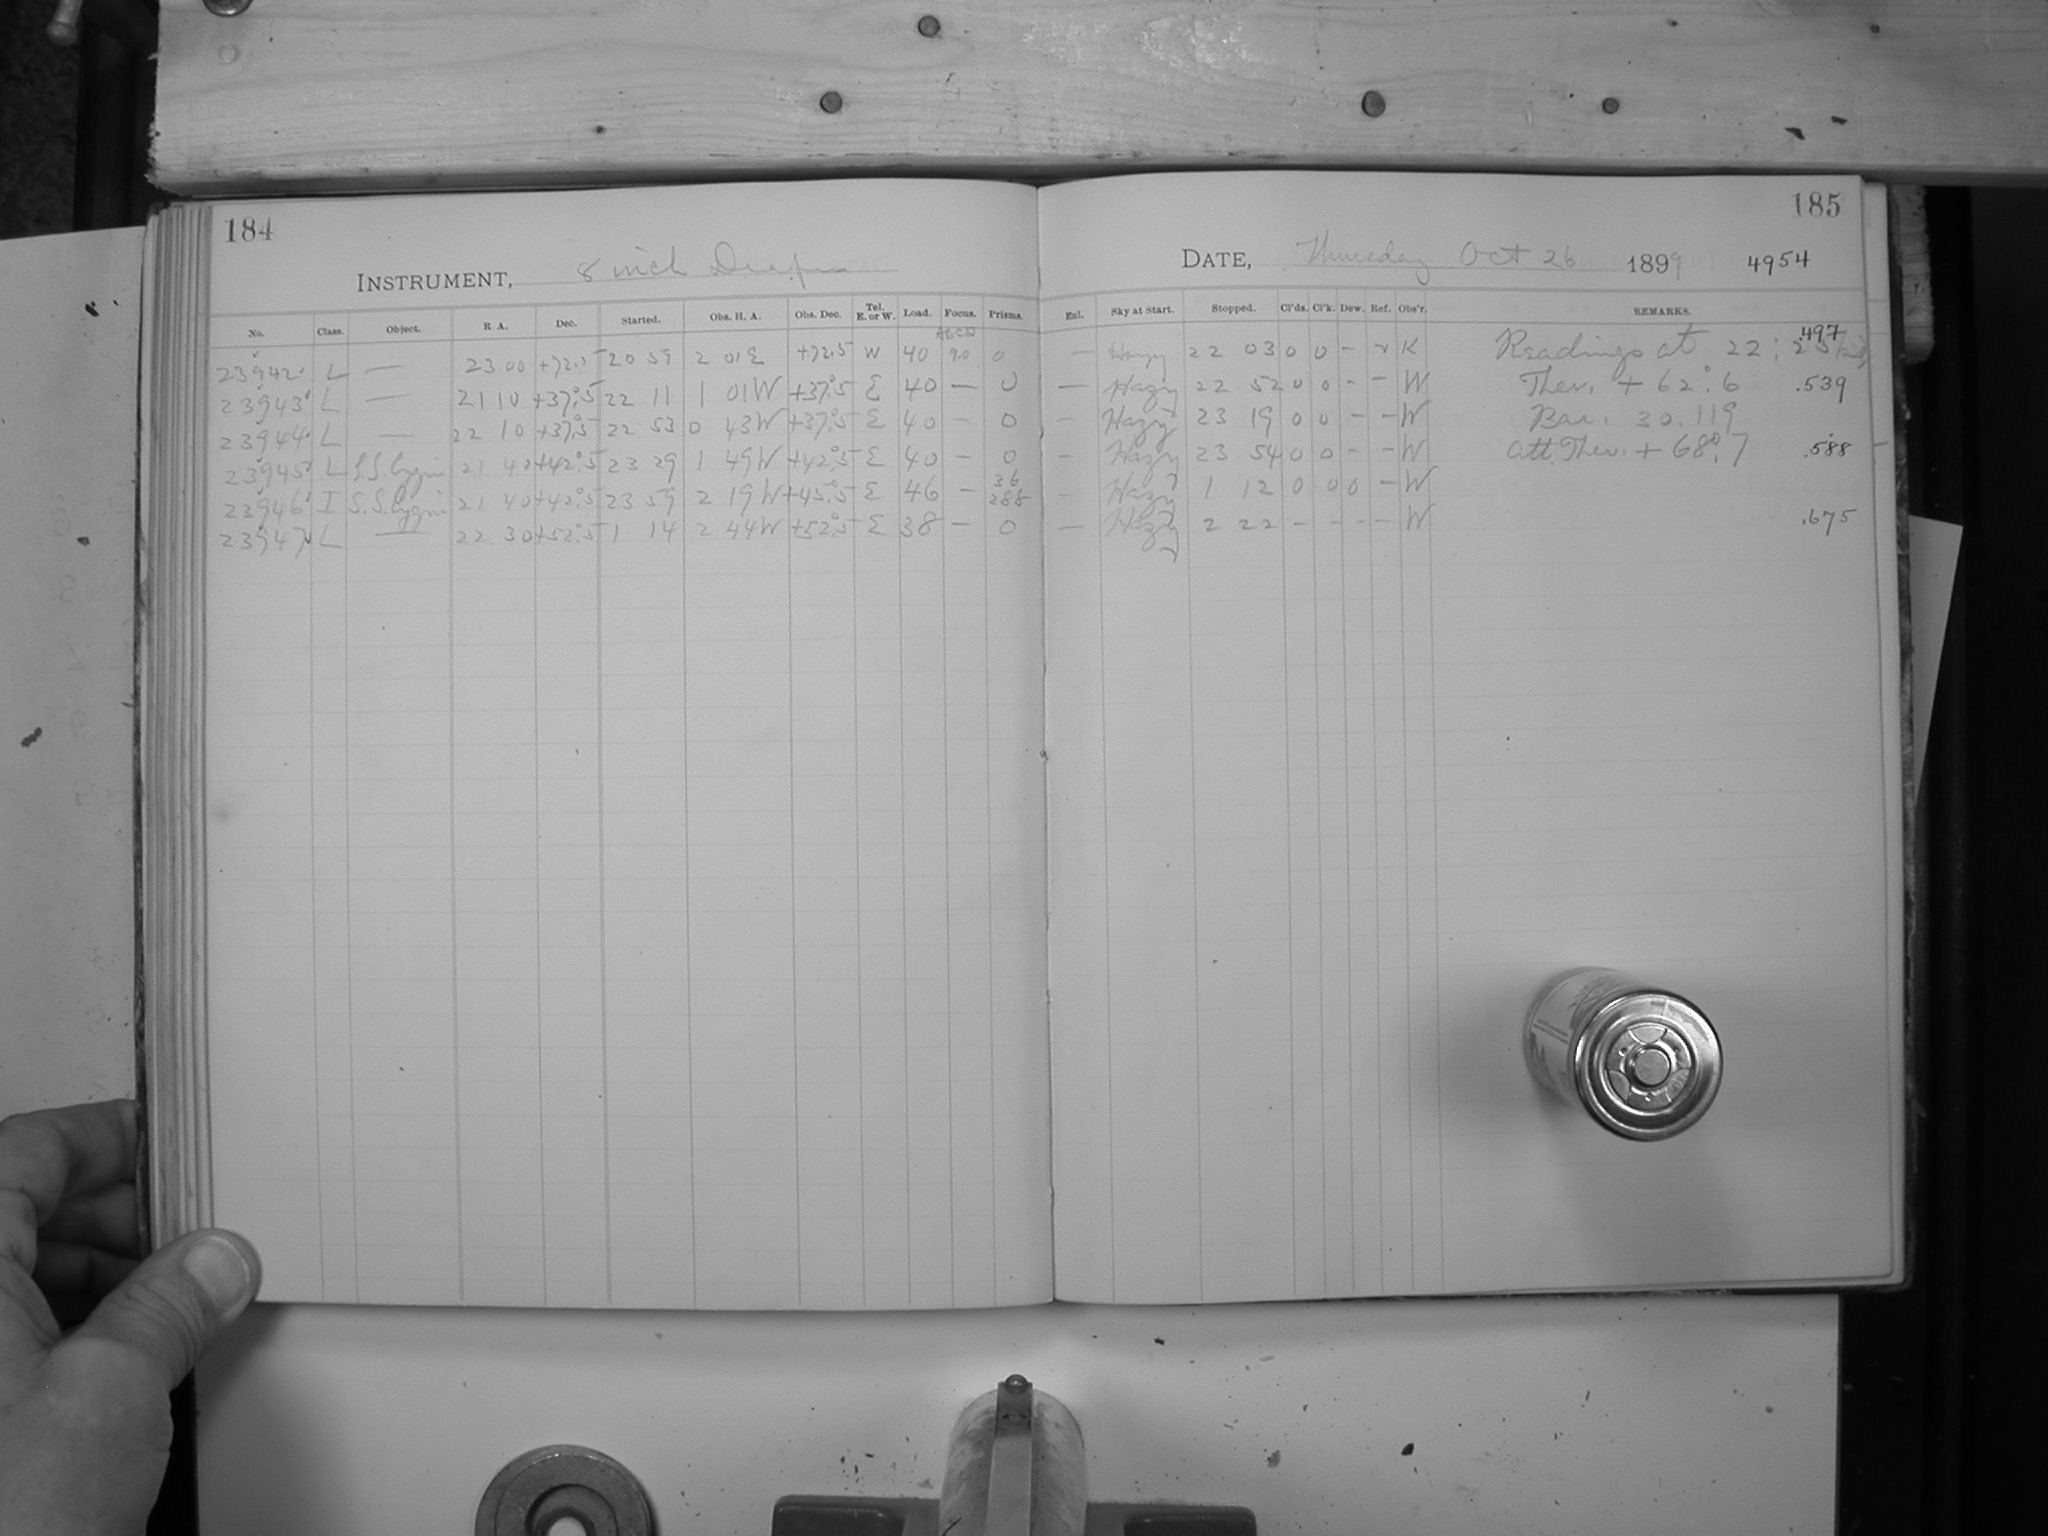 184
INSTRUMENT, 8 inch Draper
No. Class. Object. R. A. Dec. Started. Obs. H. A. Obs. Dec. Tel. E. or W. Load. Focus. Prisms.
ABCD
23942 L — 23 00 +72.5 20 59 2 01 E +72.5 W 40 9.0 0
23943 L — 21 10 +37°.5 22 11 1 01 W +37°.5 E 40 — 0
23944 L — 22 10 +37°.5 22 53 0 43 W +37°.5 E 40 — 0
23945 L S.S. Cygni 21 40 +42°.5 23 29 1 49 W +42°.5 E 40 — 0
23946 I S.S. Cygni 21 40 +42°.5 23 59 2 19 W +45°.5 E 46 — 36 288
23947 L — 22 30 +52°.5 1 14 2 44 W +52°.5 E 38 — 0
185
DATE, Thursday Oct 26 1899 4954
Enl. Sky at Start. Stopped. Cl'ds. Cl'k. Dew. Ref. Obs'r. REMARKS.
— Hazy 22 03 0 0 – r K Readings at 22: 25 .497
— Hazy 22 52 0 0 – – W Ther. + 62°.6 .539
— Hazy 23 19 0 0 – – W Bar. 30.119
— Hazy 23 54 0 0 – – W Att. Ther. + 68°.7 .588
— Hazy 1 12 0 0 0 0 – W
— Hazy 2 22 – – – – W .675